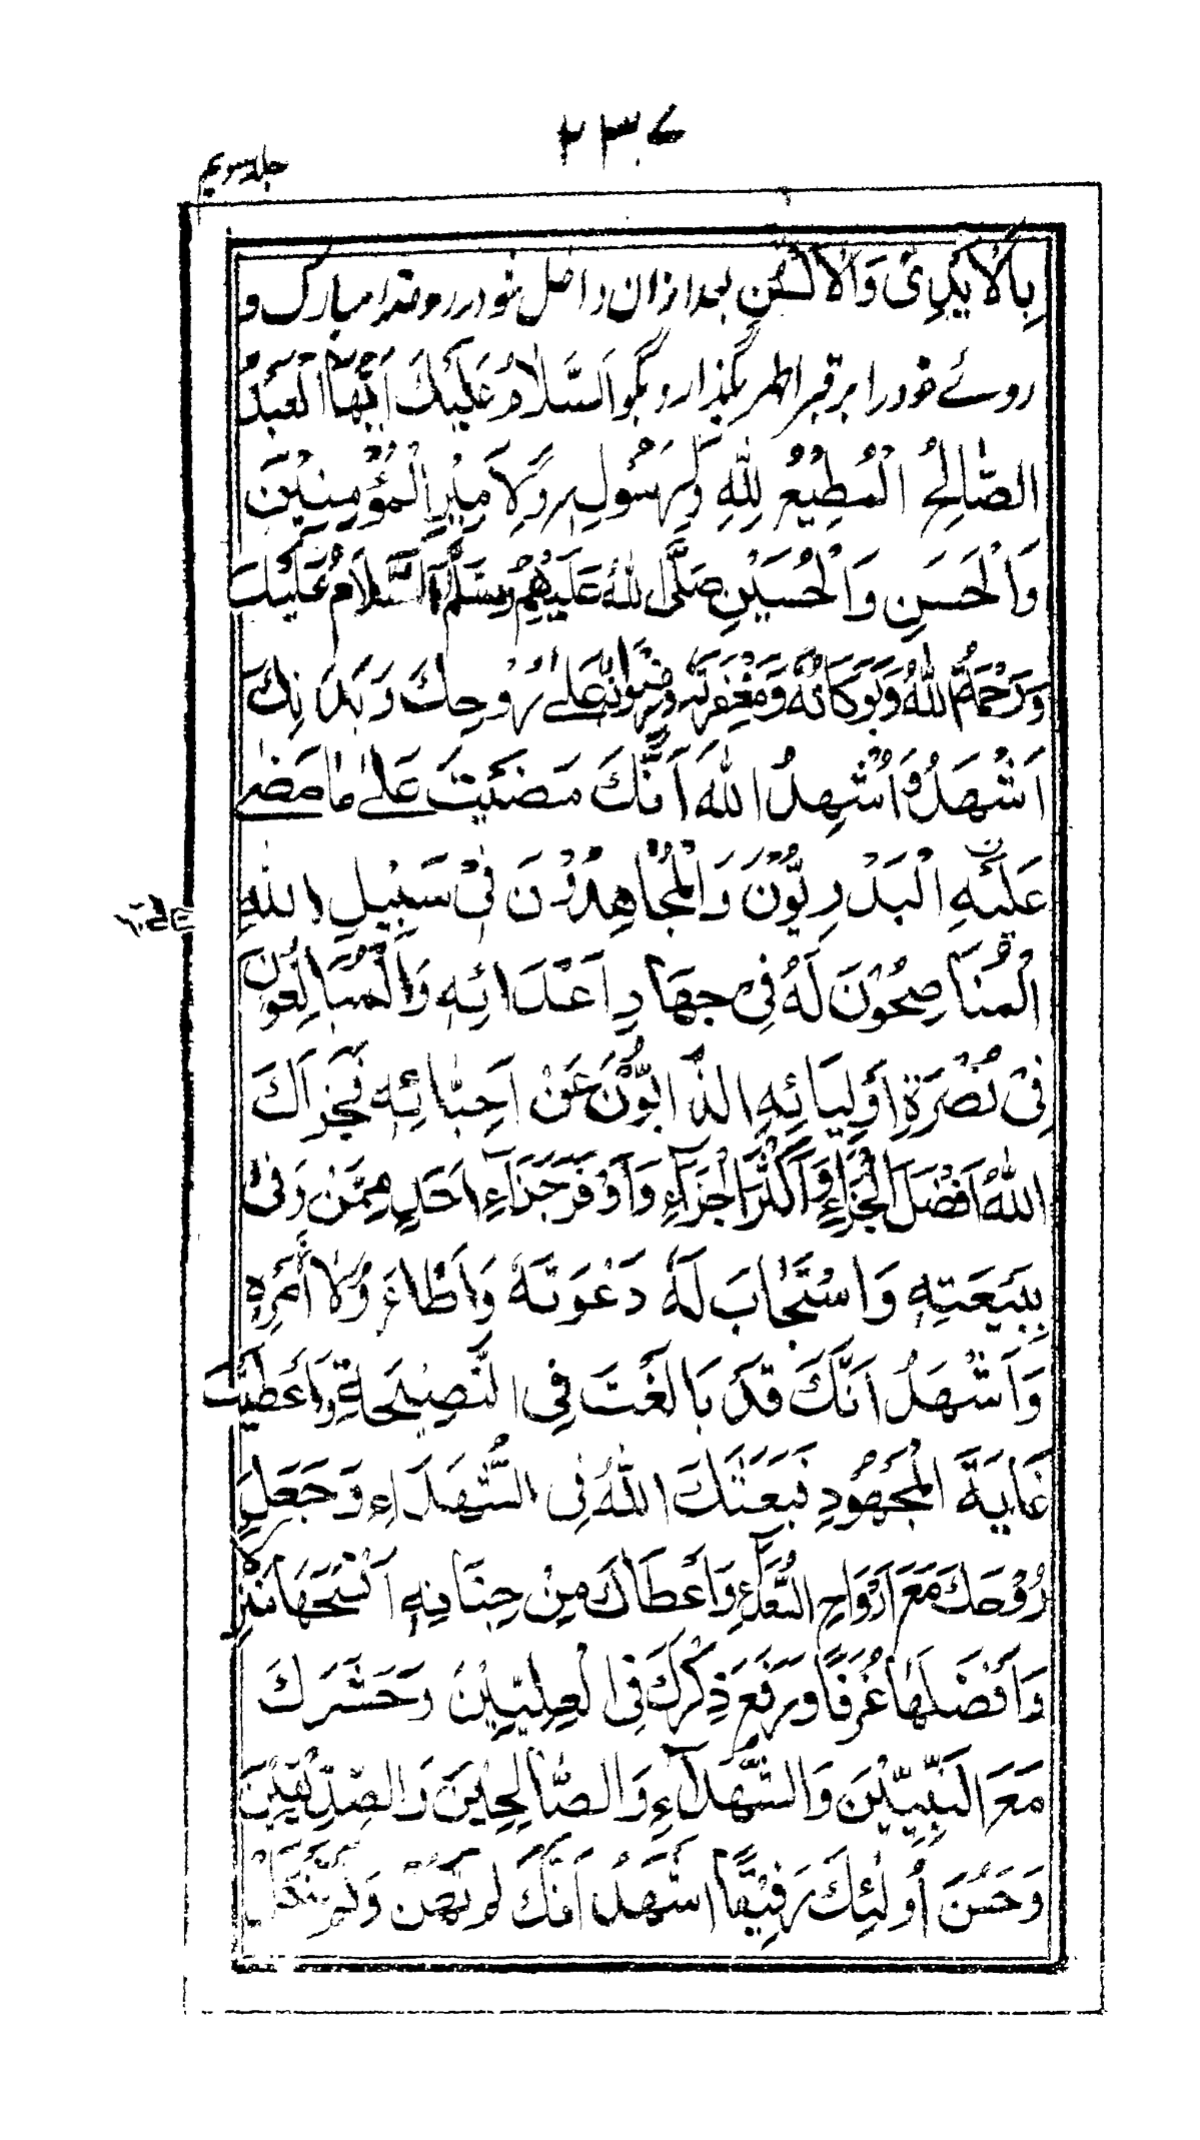 ۲۳۷
جلد سویم
بِالْاَیْدِیْ وَالْاَلْسُنِ بعد ازان داخل شو در روضهٔ مبارک و
روئے خود را بر قبر اطهر بگذار و بگو اَلسَّلَامُ عَلَیْكَ اَیُّهَا الْعَبْدُ
الصَّالِحُ الْمُطِیْعُ لِلّٰهِ وَلِرَسُولِهٖ وَلِاَمِیْرِ الْمُؤْمِنِیْنَ
وَالْحَسَنِ وَالْحُسَیْنِ صَلَّی اللّٰهُ عَلَیْهِمْ وَسَلَّمَ اَلسَّلَامُ عَلَیْكَ
وَرَحْمَةُ اللّٰهِ وَبَرَکَاتُهٗ وَمَغْفِرَتُهٗ وَرِضْوَانُهٗ عَلٰے رُوحِكَ وَبَدَنِكَ
اَشْهَدُ وَاُشْهِدُ اللّٰهَ اَنَّكَ مَضَیْتَ عَلٰے مَا مَضٰے
عَلَیْهِ الْبَدْرِیُّوْنَ وَالْمُجَاهِدُوْنَ فِیْ سَبِیْلِ اللّٰهِ
الْمُنَاصِحُوْنَ لَهُ فِیْ جِهَادِ اَعْدَائِهٖ وَالْمُبَالِغُوْنَ
فِیْ نُصْرَةِ اَوْلِیَائِهِ الذَّابُّوْنَ عَنْ اَحِبَّائِهٖ فَجَزَاكَ
اللّٰهُ اَفْضَلَ الْجَزَآءِ وَاَکْثَرَ الْجَزَآءِ وَاَوْفَرَ جَزَآءِ اَحَدٍ مِمَّنْ وَفٰی
بِبَیْعَتِهٖ وَاسْتَجَابَ لَهٗ دَعْوَتَهٗ وَاَطَاعَ وُلَاةَ اَمْرِهٖ
وَاَشْهَدُ اَنَّكَ قَدْ بَالَغْتَ فِی النَّصِیْحَةِ وَاَعْطَیْتَ
غَایَةَ الْمَجْهُوْدِ فَبَعَثَكَ اللّٰهُ فِی الشُّهَدَاءِ وَجَعَلَ
رُوْحَكَ مَعَ اَرْوَاحِ السُّعَدَآءِ وَاَعْطَاكَ مِنْ جِنَانِهٖ اَفْسَحَهَا مَنْزِلًا
وَاَفْضَلَهَا غُرَفًا وَرَفَعَ ذِکْرَكَ فِی الْعِلِیِّیْنَ وَحَشَرَكَ
مَعَ النَّبِیِّیْنَ وَالشُّهَدَآءِ وَالصَّالِحِیْنَ وَالصِّدِّیْقِیْنَ
وَحَسُنَ اُولٰئِكَ رَفِیْقًا اَشْهَدُ اَنَّكَ لَمْ تَهِنْ وَلَمْ تَنْکُلْ